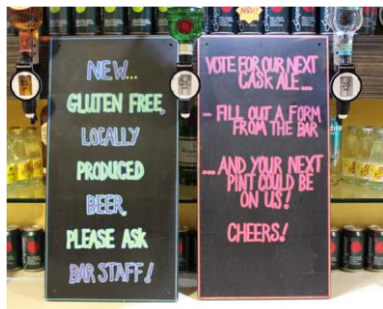 NEW...
GLUTEN FREE,
LOCALLY
PRODUCED
BEER,
PLEASE ASK
BAR STAFF!
VOTE FOR OUR NEXT
CASK ALE...
- FILL OUT A FORM
FROM THE BAR
... AND YOUR NEXT
PINT COULD BE
ON US!
CHEERS!